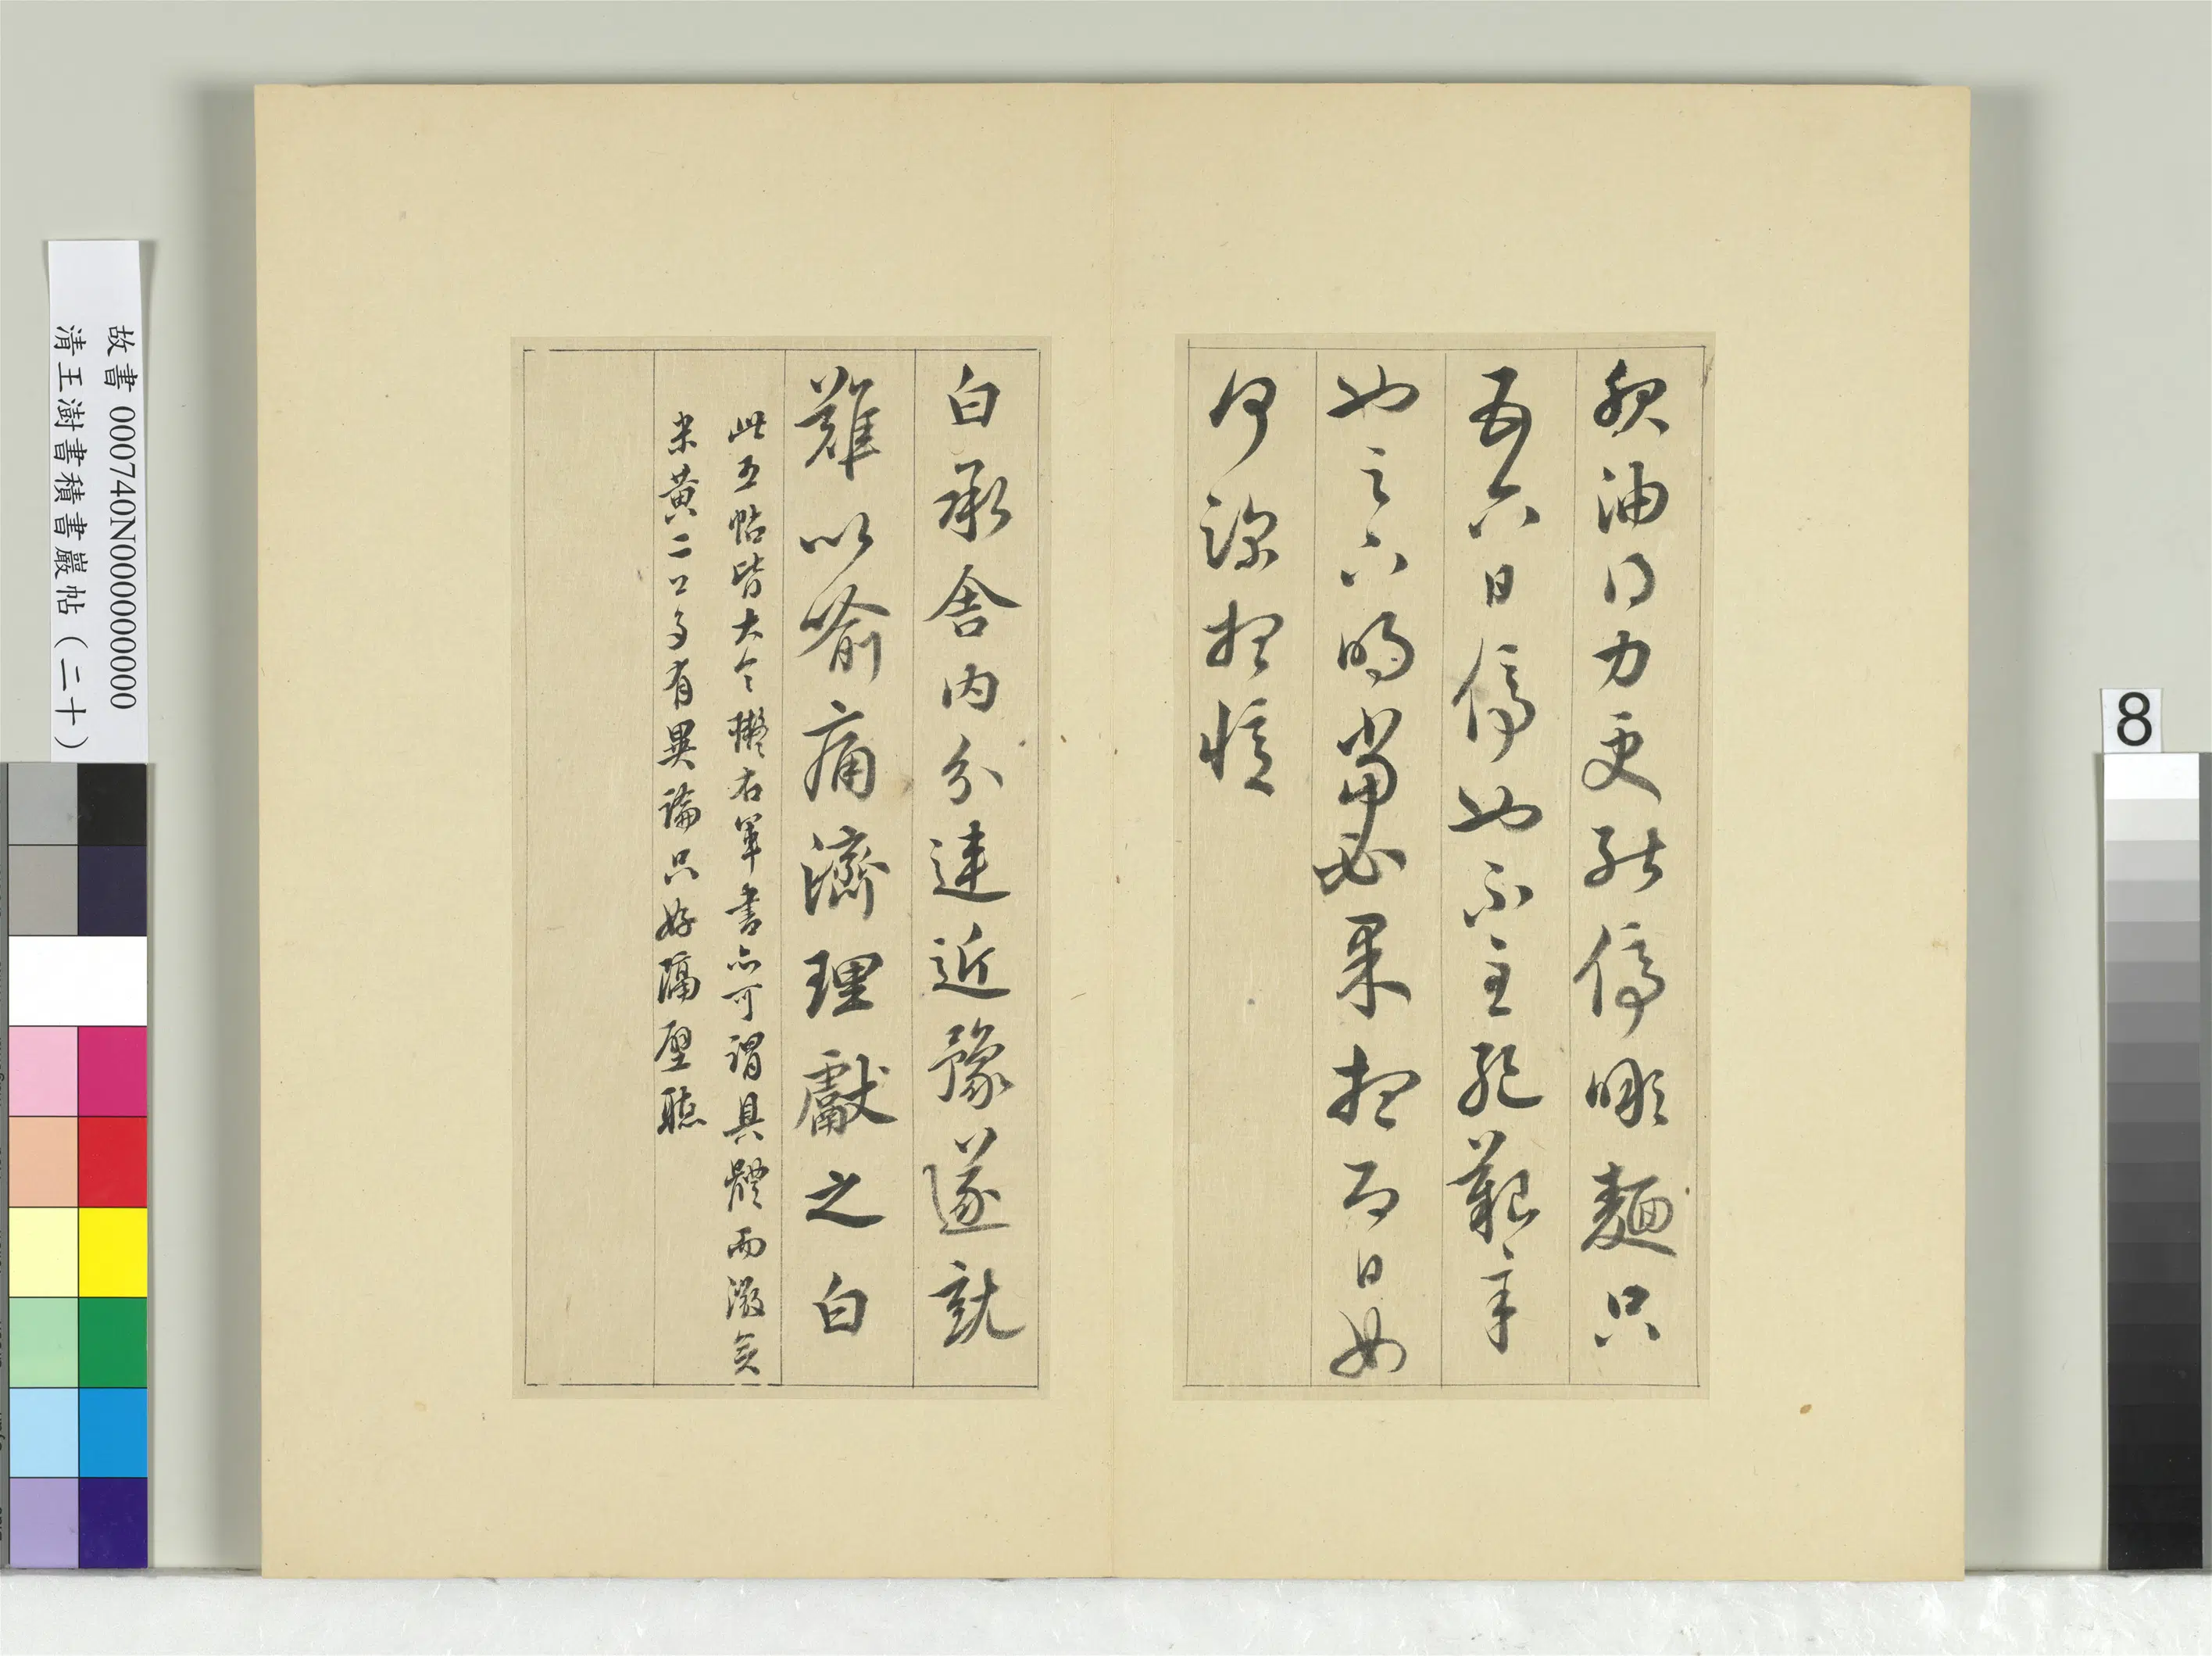 服油得力更能停噉麵只
五六日停也不至絕艱辛
也足下明當必果想即日如
何深想憶
白承舍內分違近豫遂就
難以喻痛濟理獻之白
此五帖皆大令擬右軍書亦可謂具體而微矣
米黃二公多有異論只好隔壁聽
故書 000740N000000000
清王澍書積書巖帖（二十）
8